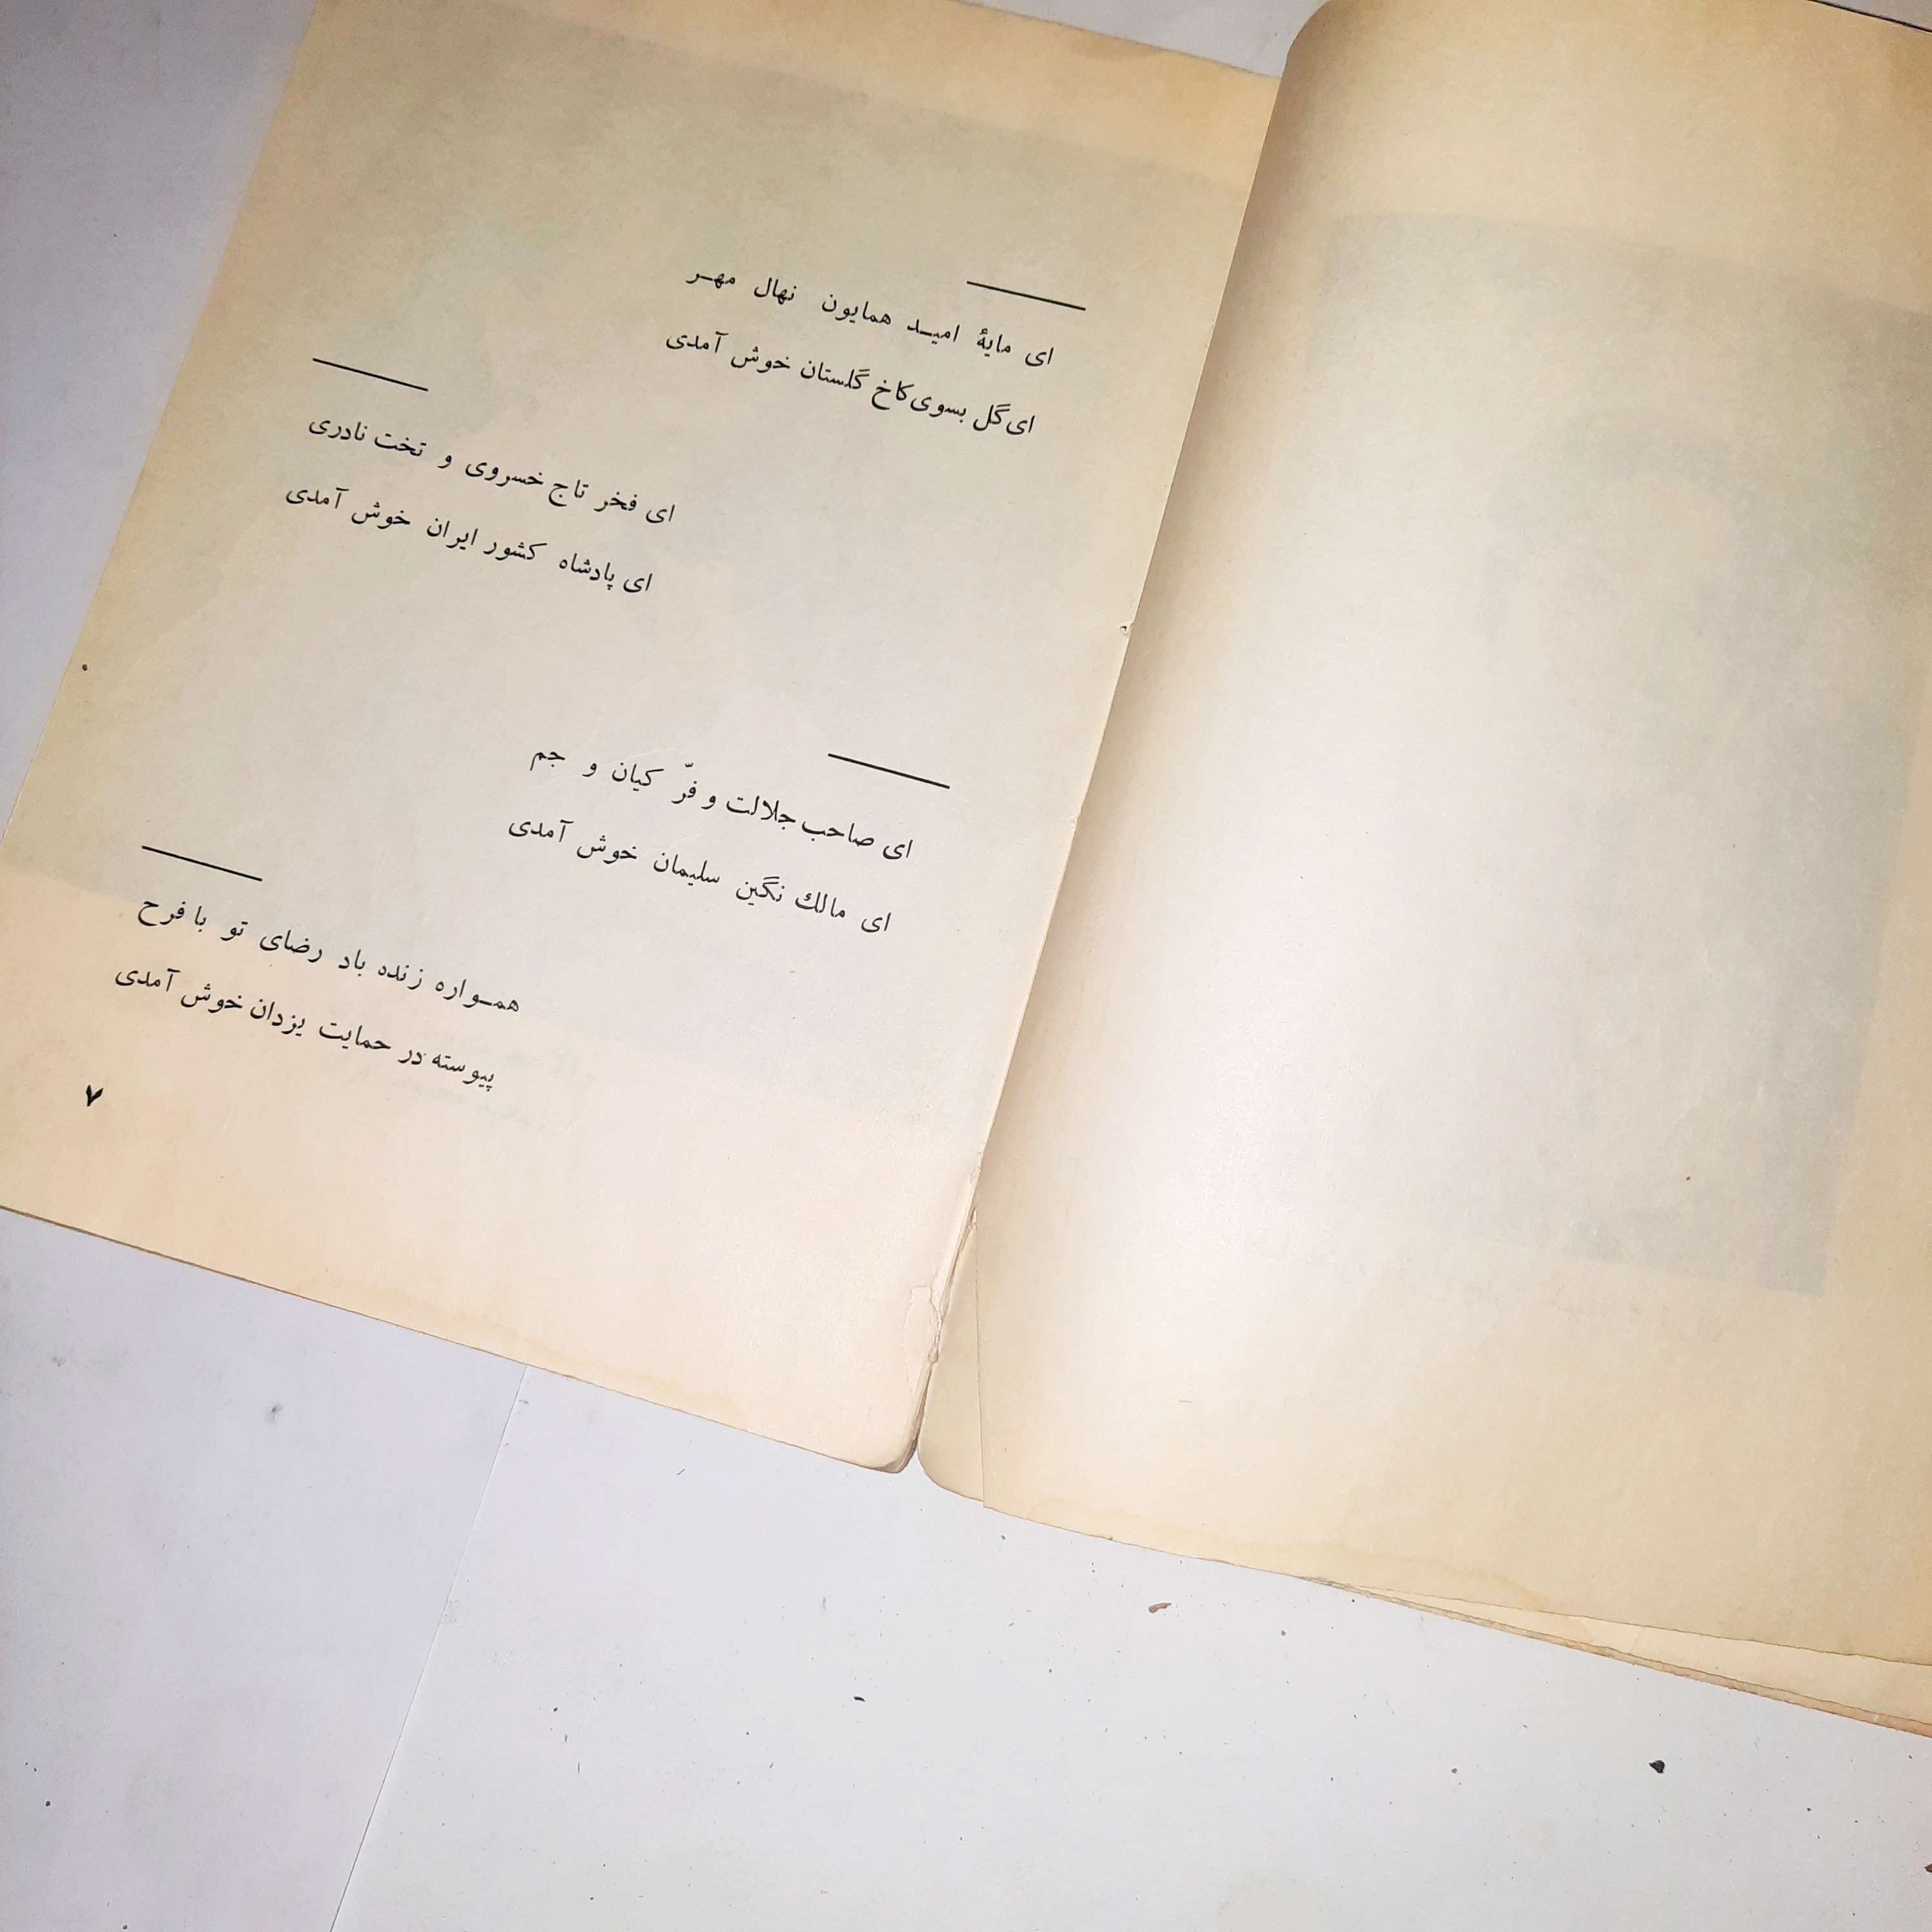 ای مایهٔ امیـد همایون نهال مهـر
ای گل بسوی کاخ گلستان خوش آمدی
ای فخر تاج خسروی و تخت نادری
ای پادشاه کشور ایران خوش آمدی
ای صاحب جلالت و فرّ کیان و جم
ای مالك نگین سلیمان خوش آمدی
همـواره زنده باد رضای تو با فرح
پیوسته در حمایت یزدان خوش آمدی
۷